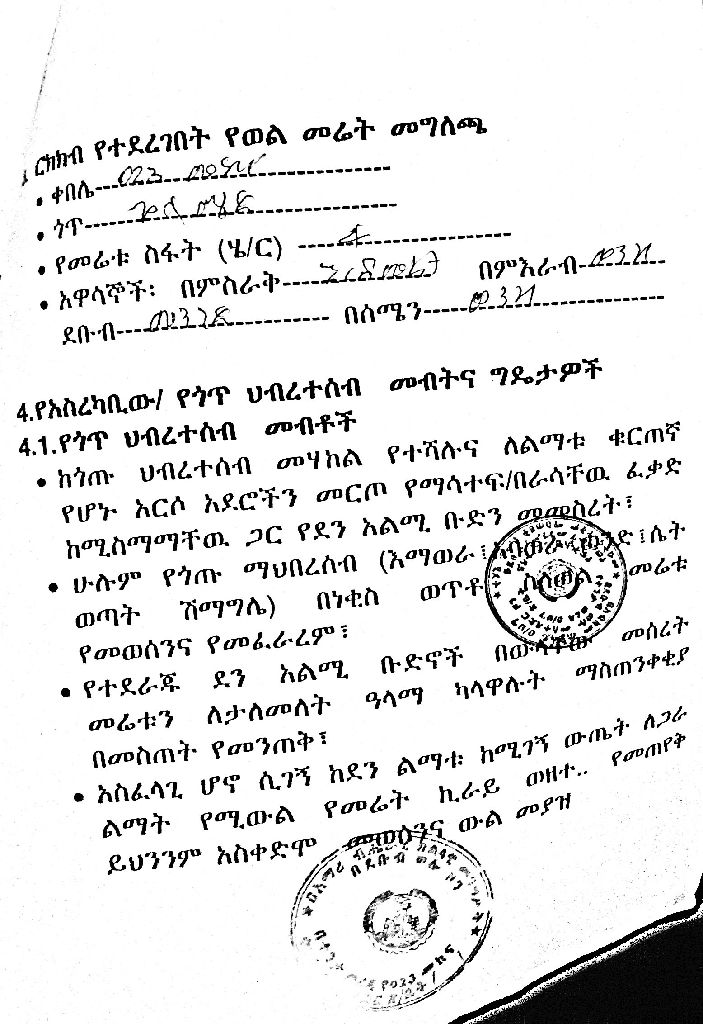 ርክክብ የተደረገበት የወል መሬት መግለጫ
• ቀበሌ
• ጎጥ
• የመሬቱ ስፋት (ሄ/ር) 4
• አዋሳኞች፡ በምስራቅ በምእራብ ወንዝ
ደቡብ መንገድ በሰሜን ወንዝ
4.የአስረካቢው/ የጎጥ ህብረተሰብ መብትና ግዴታዎች
4.1.የጎጥ ህብረተሰብ መብቶች
• ከጎጡ ህብረተሰብ መሃከል የተሻሉና ለልማቱ ቁርጠኛ
የሆኑ አርሶ አደሮችን መርጦ የማሳተፍ/በራሳቸዉ ፈቃድ
ከሚስማማቸዉ ጋር የደን አልሚ ቡድን መመስረት፣
• ሁሉም የጎጡ ማህበረሰብ (እማወራ፤ ሴት
ወጣት ሽማግሌ) በነቂስ ወጥቶ ስለወል መሬቱ
የመወሰንና የመፈራረም፣
• የተደራጁ ደን አልሚ ቡድኖች በውላቸው መሰረት
መሬቱን ለታለመለት ዓላማ ካላዋሉት ማስጠንቀቂያ
በመስጠት የመንጠቅ፣
• አስፈላጊ ሆኖ ሲገኝ ከደን ልማቱ ከሚገኝ ውጤት ለጋራ
ልማት የሚውል የመሬት ኪራይ ወዘተ.. የመጠየቅ
ይህንንም አስቀድሞ መወሰንና ውል መያዝ
በደቡብ ወሎ ዞን